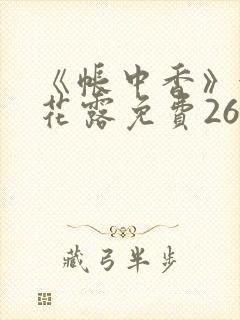 《帳中香》
花露免費26
藏弓半步